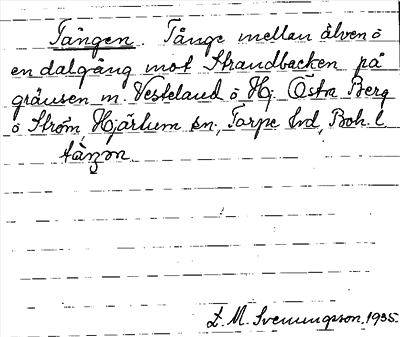 Tången. Tånge mellan älven o
en dalgång mot Strandbacken på
gränsen m. Vesteland o Hj. Östra Berg
o Ström, Hjärtum sn, Torpe hd, Boh. l.
tàŋən
L. M. Svenungsson, 1935.